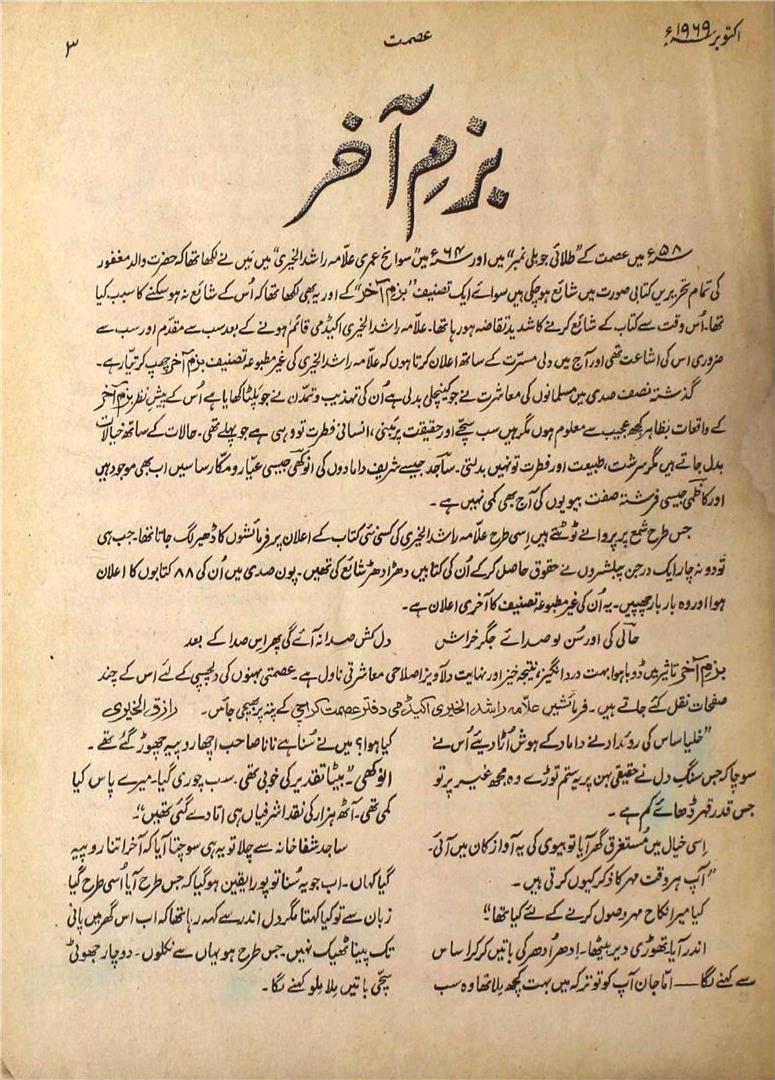 اکتوبر ۱۹۶۹ء
عصمت
۳
بزمِ آخر
۵۸ء میں عصمت کے "طلائی جوبلی نمبر" میں اور ۶۴ء میں "سوانح عمری علّامہ راشد الخیری" میں مَیں نے لکھا تھا کہ حضرت والد مغفور
کی تمام تحریریں کتابی صورت میں شائع ہو چکی ہیں سوائے ایک تصنیف "بزمِ آخر" کے اور یہ بھی لکھا تھا کہ اُس کے شائع نہ ہو سکنے کا سبب کیا
تھا۔ اُس وقت سے کتاب کے شائع کرنے کا شدید تقاضہ ہو رہا تھا۔ علّامہ راشد الخیری اکیڈمی قائم ہونے کے بعد سب سے مقدّم اور سب سے
ضروری اس کی اشاعت تھی اور آج میں دلی مسرّت کے ساتھ اعلان کرتا ہوں کہ علّامہ راشد الخیری کی غیر مطبوعہ تصنیف بزمِ آخر چھپ کر تیار ہے۔
گذشتہ نصف صدی میں مسلمانوں کی معاشرت نے جو کینچلی بدلی ہے اُن کی تہذیب و تمدّن نے جو پلٹا کھایا ہے اُس کے پیشِ نظر بزمِ آخر
کے واقعات بظاہر کچھ عجیب سے معلوم ہوں مگر ہیں سب سچّے اور حقیقت پر مبنی، انسانی فطرت تو وہی ہے جو پہلے تھی۔ حالات کے ساتھ خیالات
بدل جاتے ہیں مگر سرشت، طبیعت اور فطرت تو نہیں بدلتی۔ ساجد جیسے شریف دامادوں کی انوکھی جیسی عیّار و مکّار ساسیں اب بھی موجود ہیں
اور کاظمی جیسی فرشتہ صفت بیویوں کی آج بھی کمی نہیں ہے۔
جس طرح شمع پر پروانے ٹوٹتے ہیں اِسی طرح علّامہ راشد الخیری کی کسی نئی کتاب کے اعلان پر فرمائشوں کا ڈھیر لگ جاتا تھا۔ جب ہی
تو دو نہ چار ایک درجن پبلشروں نے حقوق حاصل کر کے اُن کی کتابیں دھڑا دھڑ شائع کی تھیں۔ پون صدی میں اُن کی ۸۸ کتابوں کا اعلان
ہوا اور وہ بار بار چھپیں۔ یہ اُن کی غیر مطبوعہ تصنیف کا آخری اعلان ہے۔
حالی کی اور سُن لو صدائے جگر خراش     دل کش صدا نہ آئے گی پھر اس صدا کے بعد
بزمِ آخر تاثیر میں ڈوبا ہوا بہت درد انگیز، نتیجہ خیز اور نہایت دلآویز اصلاحی معاشرتی ناول ہے۔ عصمتی بہنوں کی دلچسپی کے لئے اس کے چند
صفحات نقل کئے جاتے ہیں۔ فرمائشیں علامہ راشد الخیری اکیڈمی دفتر عصمت کراچی کے پتہ پر بھیجی جائیں۔     رازق الخیری
"خلیا ساس کی روئداد نے داماد کے ہوش اُڑا دیئے اُس نے
سوچا کہ جس سنگ دل نے حقیقی بہن پر یہ ستم توڑے وہ مجھ غیر پر تو
جس قدر قہر ڈھائے کم ہے۔
اِسی خیال میں مُستغرق گھر آیا تو بیوی کی یہ آواز کان میں آئی۔
"آپ ہر وقت مہر کا ذکر کیوں کرتی ہیں۔
کیا میرا نکاح مہر وصول کرنے کے لئے کیا تھا"
اندر آیا۔ تھوڑی دیر بیٹھا۔ اِدھر اُدھر کی باتیں کر کر ا ساس
سے کہنے لگا — امّا جان آپ کو تو ترکہ میں بہت کچھ مِلا تھا وہ سب
کیا ہوا؟ میں نے سُنا ہے نانا صاحب اچھا روپیہ چھوڑ گئے تھے۔
انوکھی "بیٹا تقدیر کی خوبی تھی۔ سب چوری گیا۔ میرے پاس کیا
کمی تھی۔ آٹھ ہزار کی نقد اشرفیاں ہی اتا دے گئی تھیں"۔
ساجد شفاخانہ سے چلا تو یہ ہی سوچتا آیا کہ آخر اتنا روپیہ
گیا کہاں۔ اب جو یہ سُنا تو پورا یقین ہو گیا کہ جس طرح آیا اُسی طرح گیا
زبان سے تو کیا کہتا مگر دل اندر سے کہہ رہا تھا کہ اب اس گھر میں پانی
تک پینا ٹھیک نہیں۔ جس طرح ہو یہاں سے نکلوں۔ دو چار جھوٹی
سچّی باتیں مِلا مِلو کہنے لگا۔